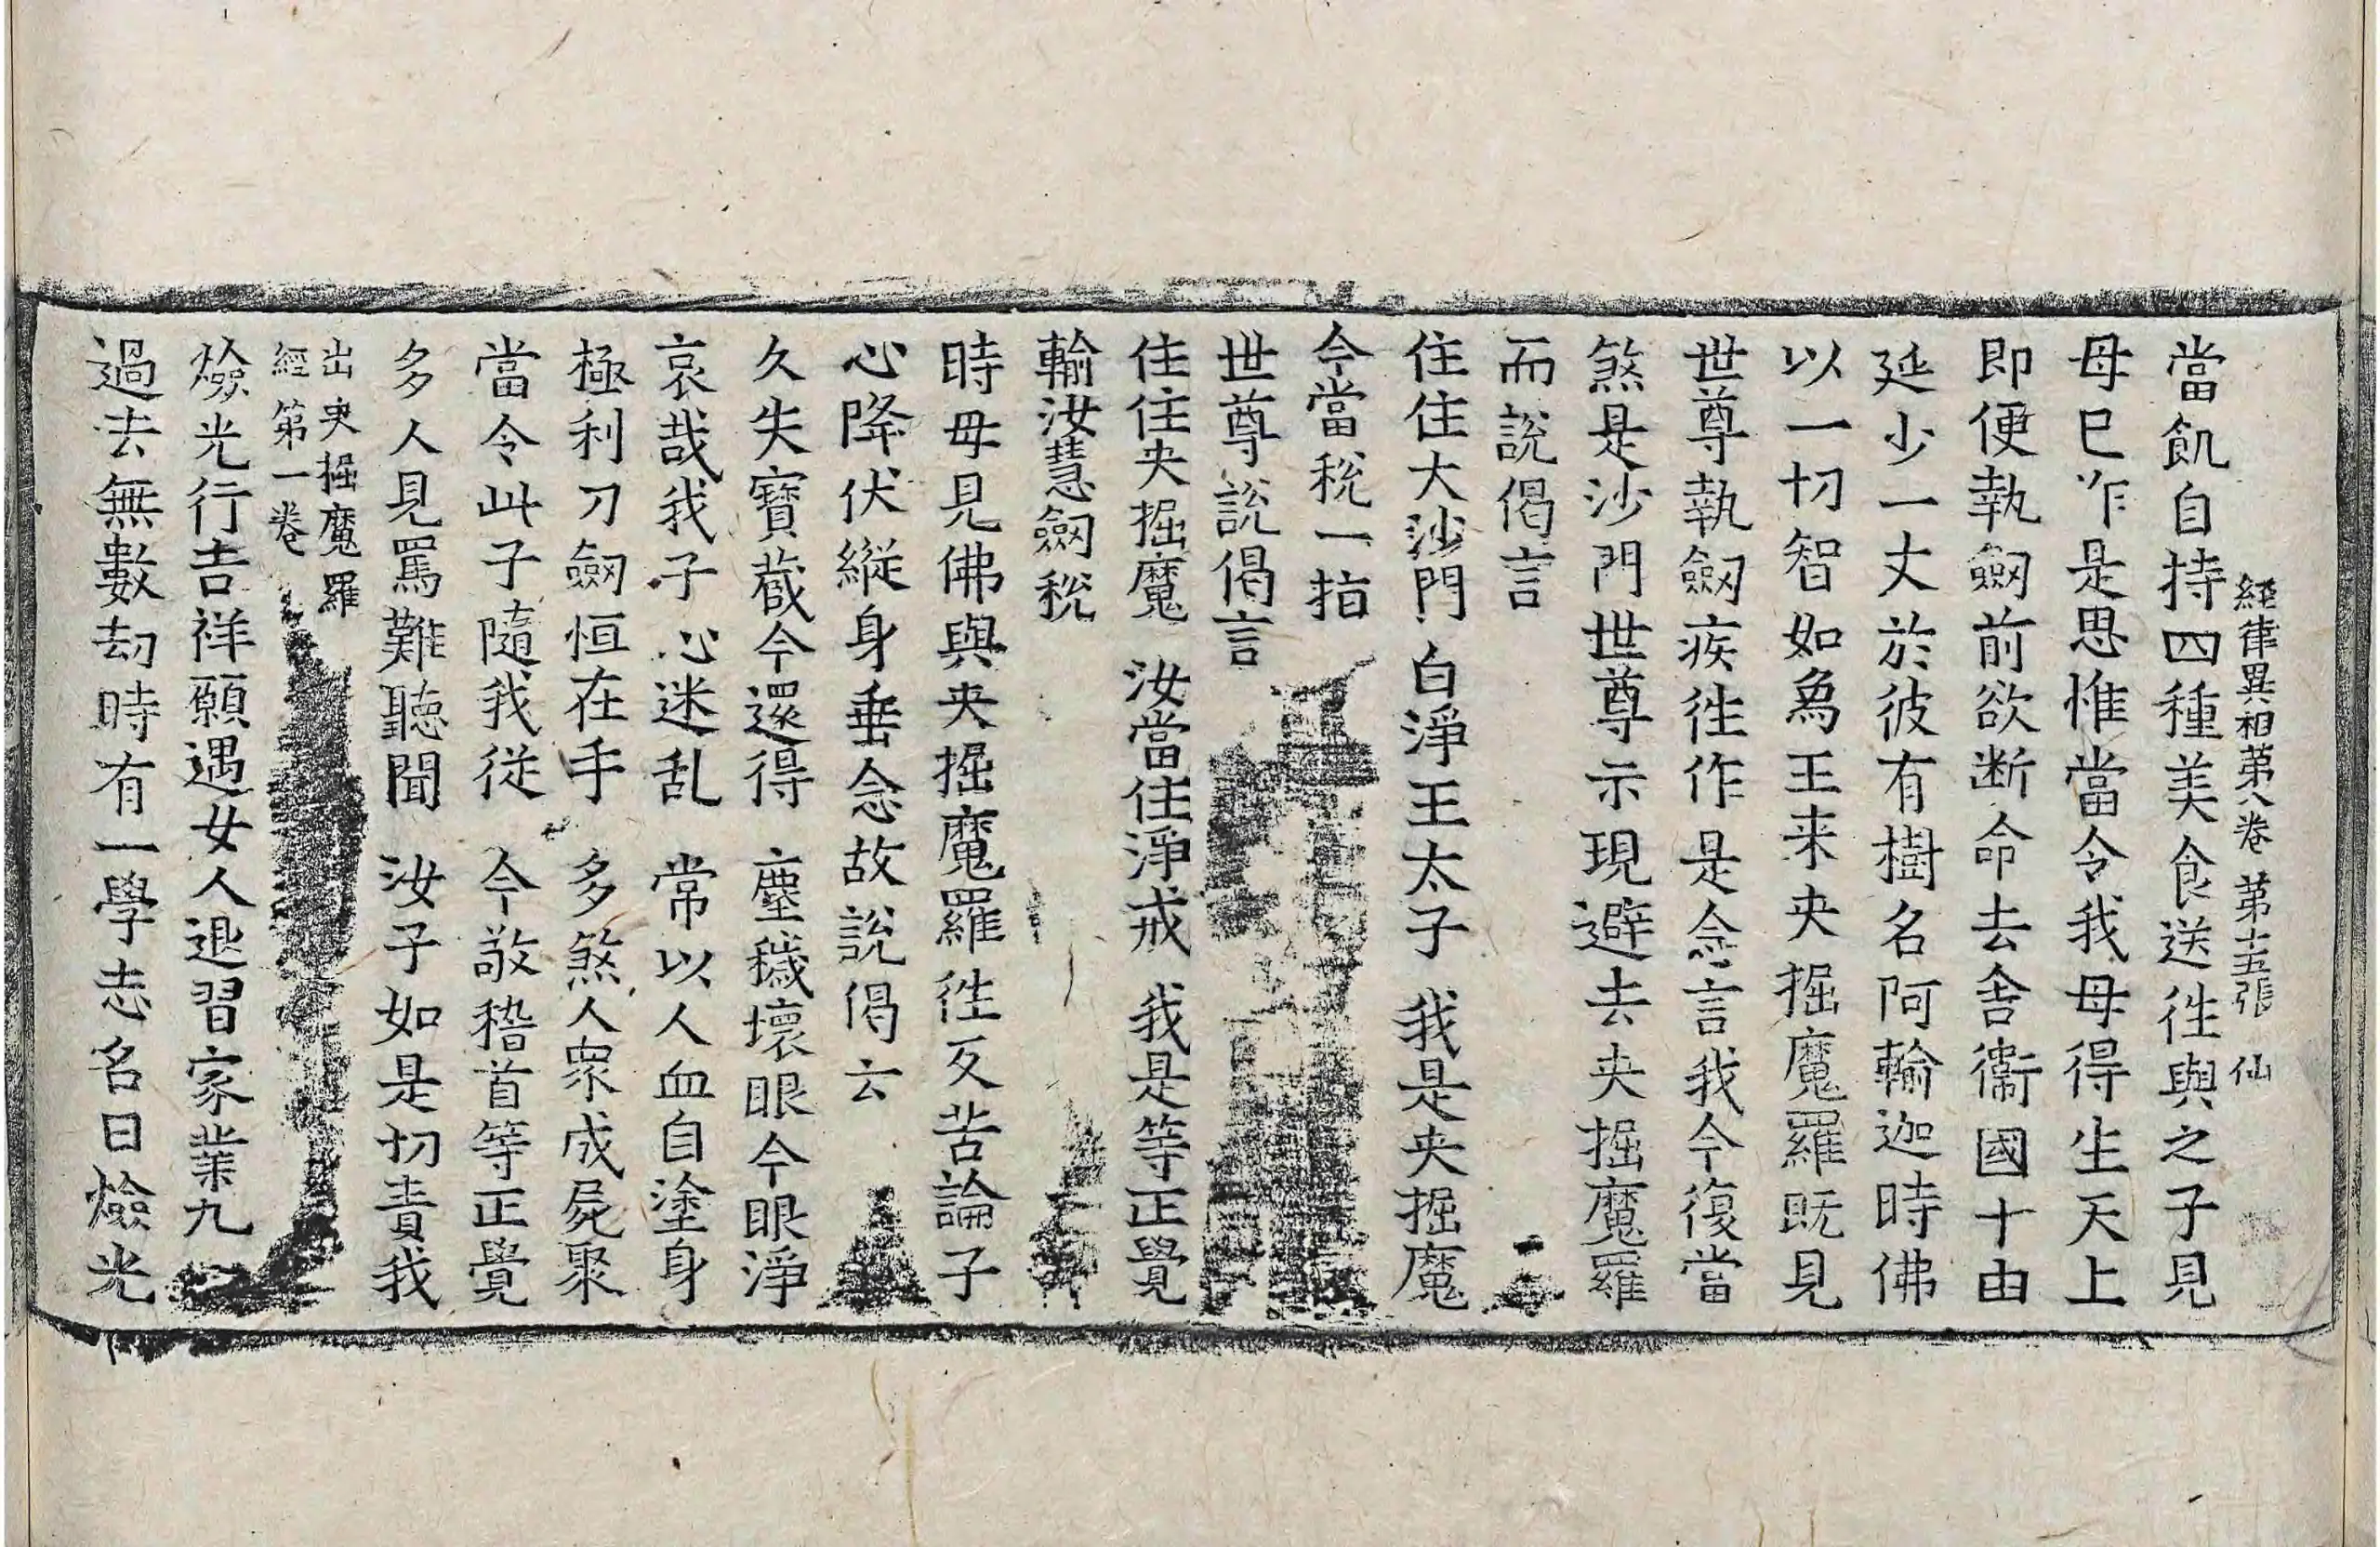 經律異相第八卷 第十五張 仙
當飢自持四種美食送徃與之子見
母已作是思惟當令我母得生天上
即便執劔前欲断命去舍衞國十由
延少一丈於彼有樹名阿輸迦時佛
以一切智如鴈王来央掘魔羅旣見
世尊執劔疾徃作是念言我今復當
煞是沙門世尊示現避去央掘魔羅
而說偈言
住住大沙門 白淨王太子 我是央掘魔
今當稅一指
世尊說偈言
住住央掘魔 汝當住淨戒 我是等正覺
輸汝慧劔稅
時母見佛與央掘魔羅徃反苦論子
心降伏縱身垂念故說偈云
久失寶蔵今還得 塵穢壞眼今眼淨
哀哉我子心迷乱 常以人血自塗身
極利刀劔恒在手 多煞人衆成屍聚
當令此子隨我從 今敬稽首等正覺
多人見罵難聽聞 汝子如是切責我
出央掘魔羅
經第一卷
燄光行吉祥願遇女人退習家業九
過去無數劫時有一學志名曰燄光